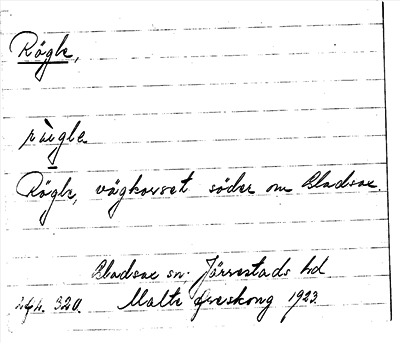 Rögle,
ràigle
Rögle, vägkorset söder om Bladsax.
Bladsax sn. Järrestads hd
Malte Areskoug 1923.
320.